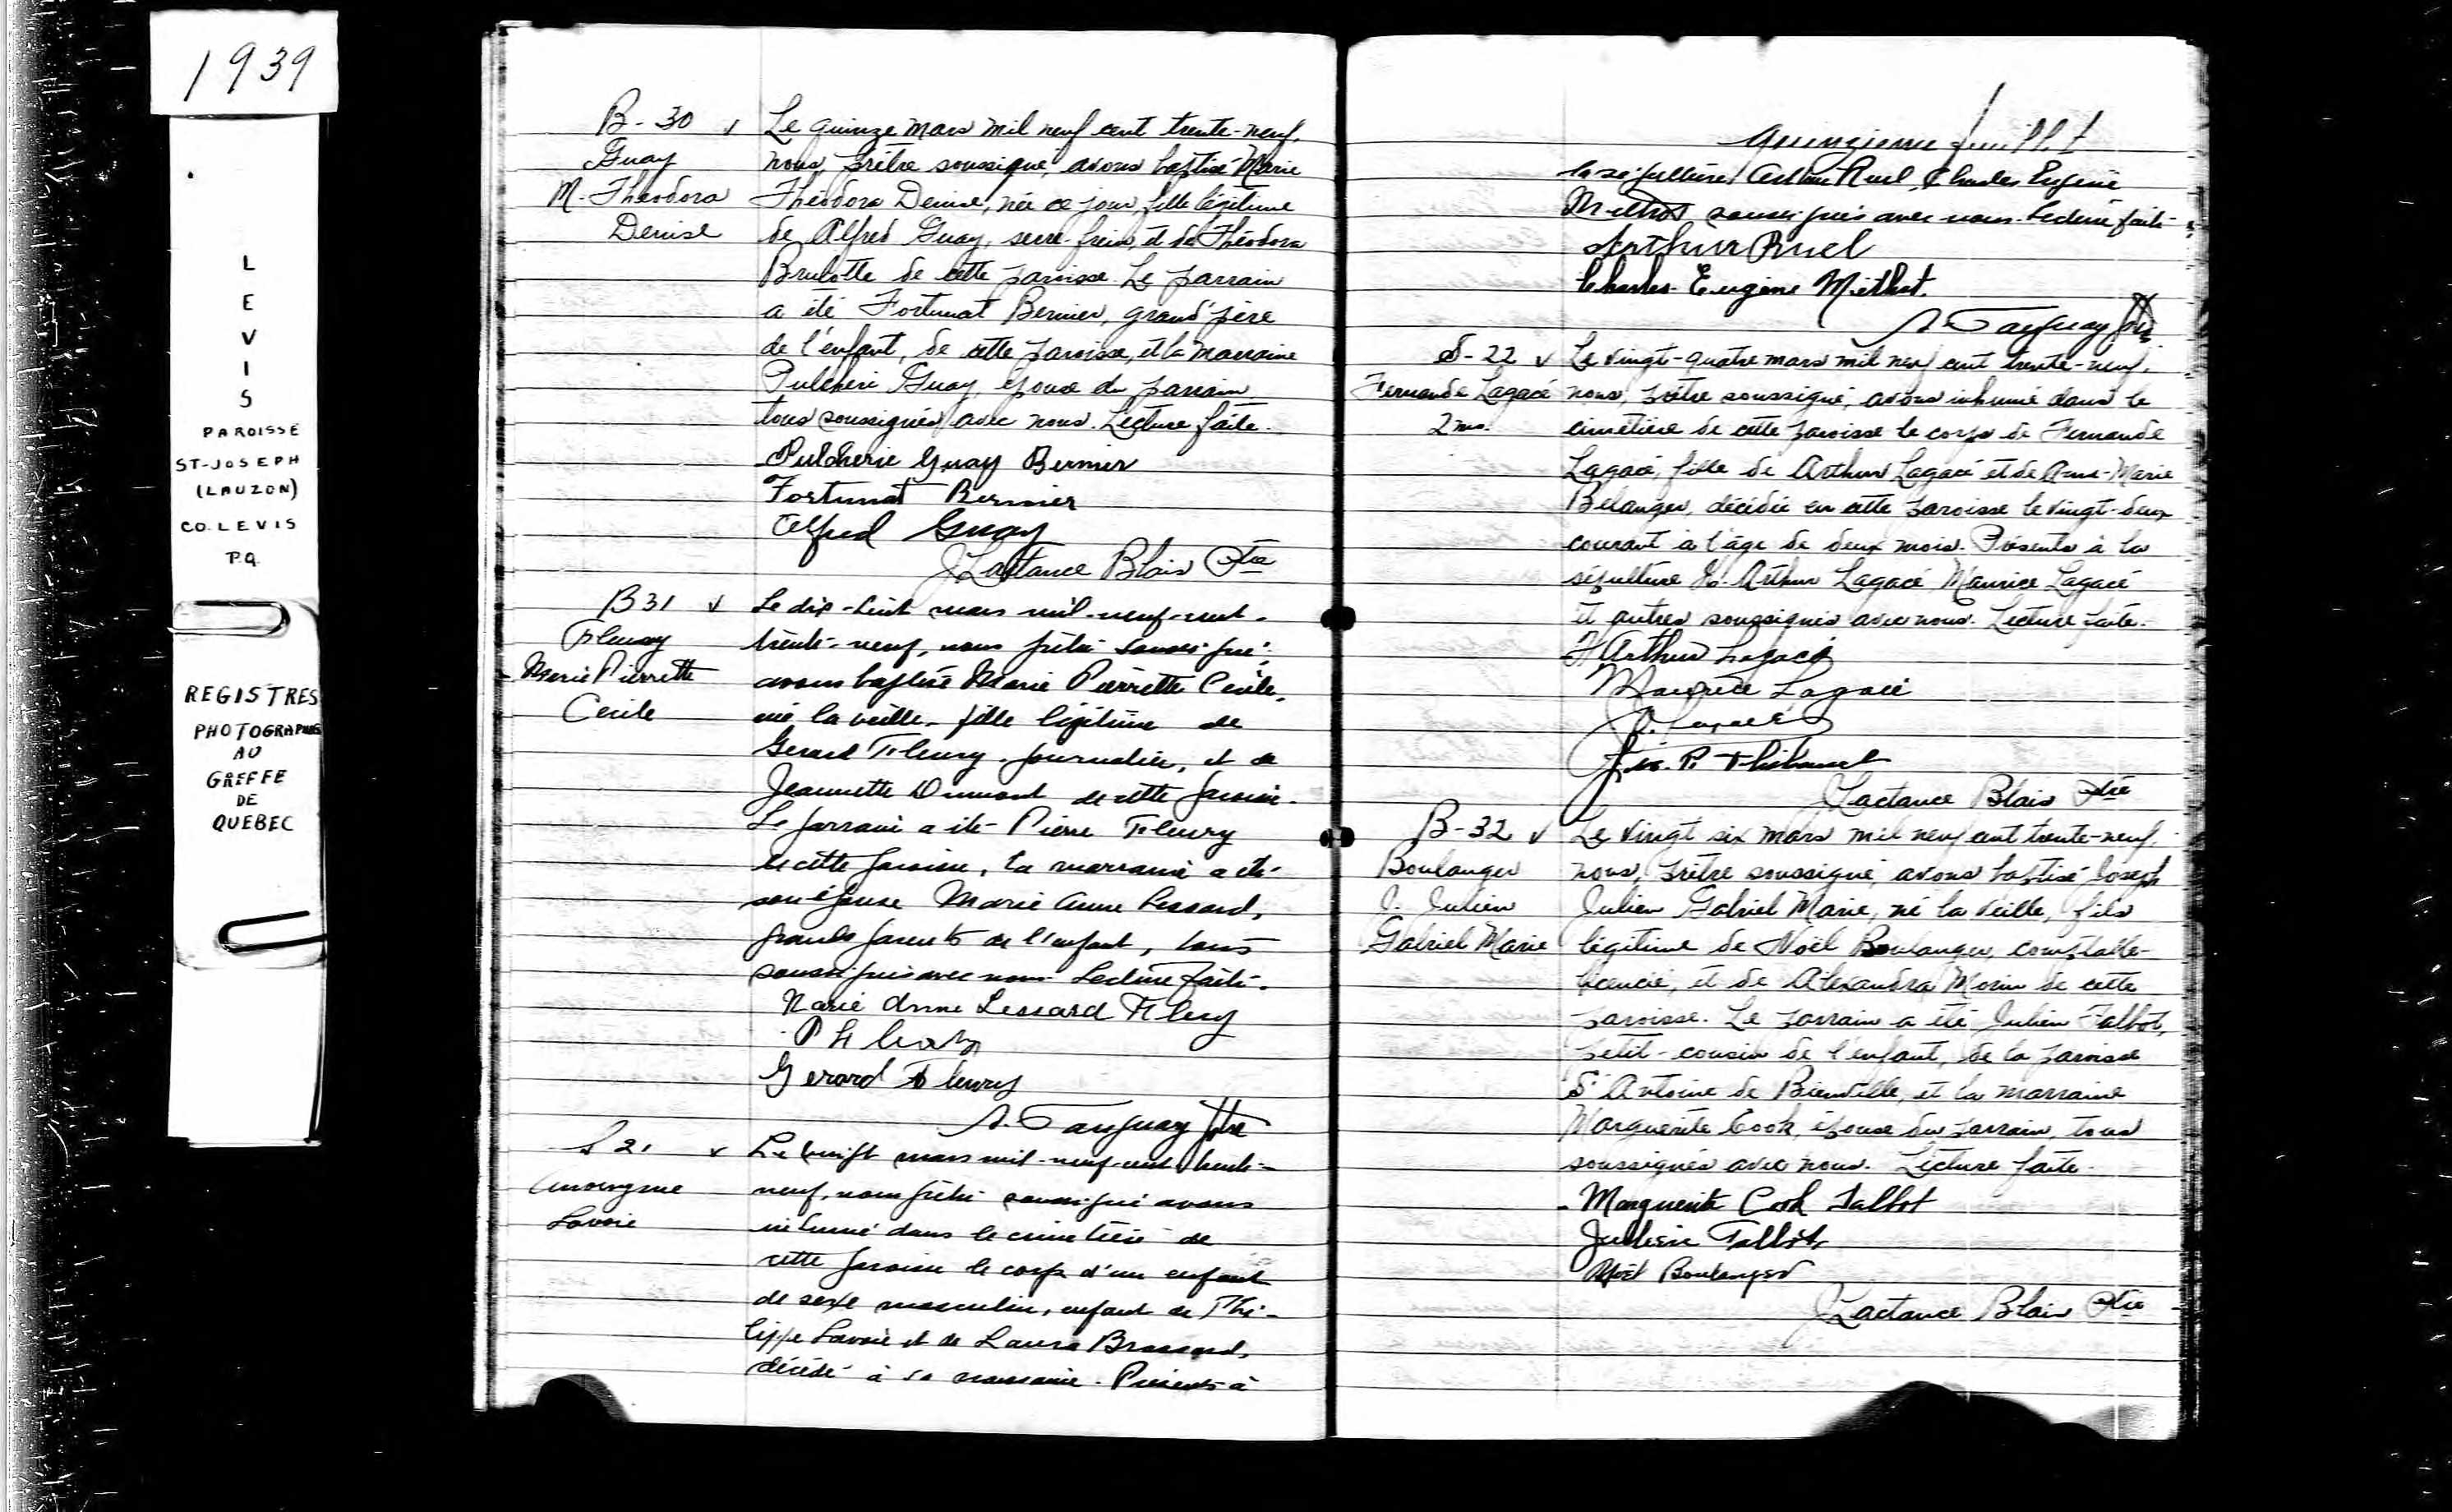 1939
L
E
V
I
S
PAROISSE
ST-JOSEPH
(LAUZON)
CO. LEVIS
P.Q.
REGISTRES
PHOTOGRAPHIÉS
AU
GREFFE
DE
QUEBEC
B-30 v Le quinze mars mil neuf cent trente-neuf,
Guay nous, prêtre soussigné, avons baptisé Marie
M. Théodora Théodora Denise, née ce jour, fille légitime
Denise de Alfred Guay, serre-freins, et de Théodora
Brulotte de cette paroisse. Le parrain
a été Fortunat Bernier, grand'père
de l'enfant, de cette paroisse, et la marraine
Pulchérie Guay, épouse du parrain,
tous soussignés avec nous. Lecture faite.
Pulcherie Guay Bernier
Fortunat Bernier
Alfred Guay
J Lactance Blais Ptre
B 31 v Le dix-huit mars mil-neuf-cent-
Fleury trente-neuf, nous prêtre soussigné,
Marie Pierrette avons baptisé Marie Pierrette Cécile,
Cécile née la veille, fille légitime de
Gerard Fleury, journalier, et de
Jeannette Dumont de cette paroisse.
Le parrain a été Pierre Fleury
de cette paroisse, la marraine a été
son épouse Marie Anne Lessard,
grands parents de l'enfant, tous
soussignés avec nous. Lecture faite.
Marie Anne Lessard Fleury
P Fleury
Gerard Fleury
A. Tanguay ptre
S 21 v Le vingt mars mil-neuf-cent trente-
Anonyme neuf, nous prêtre soussigné avons
Lavoie inhumé dans le cimetière de
cette paroisse le corps d'un enfant
de sexe masculin, enfant de Phi-
lippe Lavoie et de Laura Brassard,
décédé à sa naissance. Présents à
Quinzieme feuillet
la sépulture, Arthur Ruel, Charles Eugène
Méthot soussignés avec nous. Lecture faite.
Arthur Ruel
Charles-Eugène Méthot.
A. Tanguay ptre
S-22 v Le vingt-quatre mars mil neuf cent trente-neuf,
Fernande Lagacé nous, prêtre soussigné, avons inhumé dans le
2 ms. cimetière de cette paroisse le corps de Fernande
Lagacé, fille de Arthur Lagacé et de Anne-Marie
Bélanger, décédée en cette paroisse le vingt-deux
courant à l'âge de deux mois. Présents à la
sépulture H. Arthur Lagacé Maurice Lagacé
et autres soussignés avec nous. Lecture faite.
H Arthur Lagacé
Maurice Lagacé
Lagacé
P. Thibault
J Lactance Blais Ptre
B-32 v Le vingt six mars mil neuf cent trente-neuf,
Boulanger nous, prêtre soussigné, avons baptisé Joseph
J. Julien Julien Gabriel Marie, né la veille, fils
Gabriel Marie légitime de Noël Boulanger, comptable-
licencié, et de Alexandra Morin de cette
paroisse. Le parrain a été Julien Talbot,
petit-cousin de l'enfant, de la paroisse
St Antoine de Bienville, et la marraine
Marguerite Cook, épouse du parrain, tous
soussignés avec nous. Lecture faite.
Marguerite Cook Talbot
Julien Talbot
Noël Boulanger
J Lactance Blais Ptre